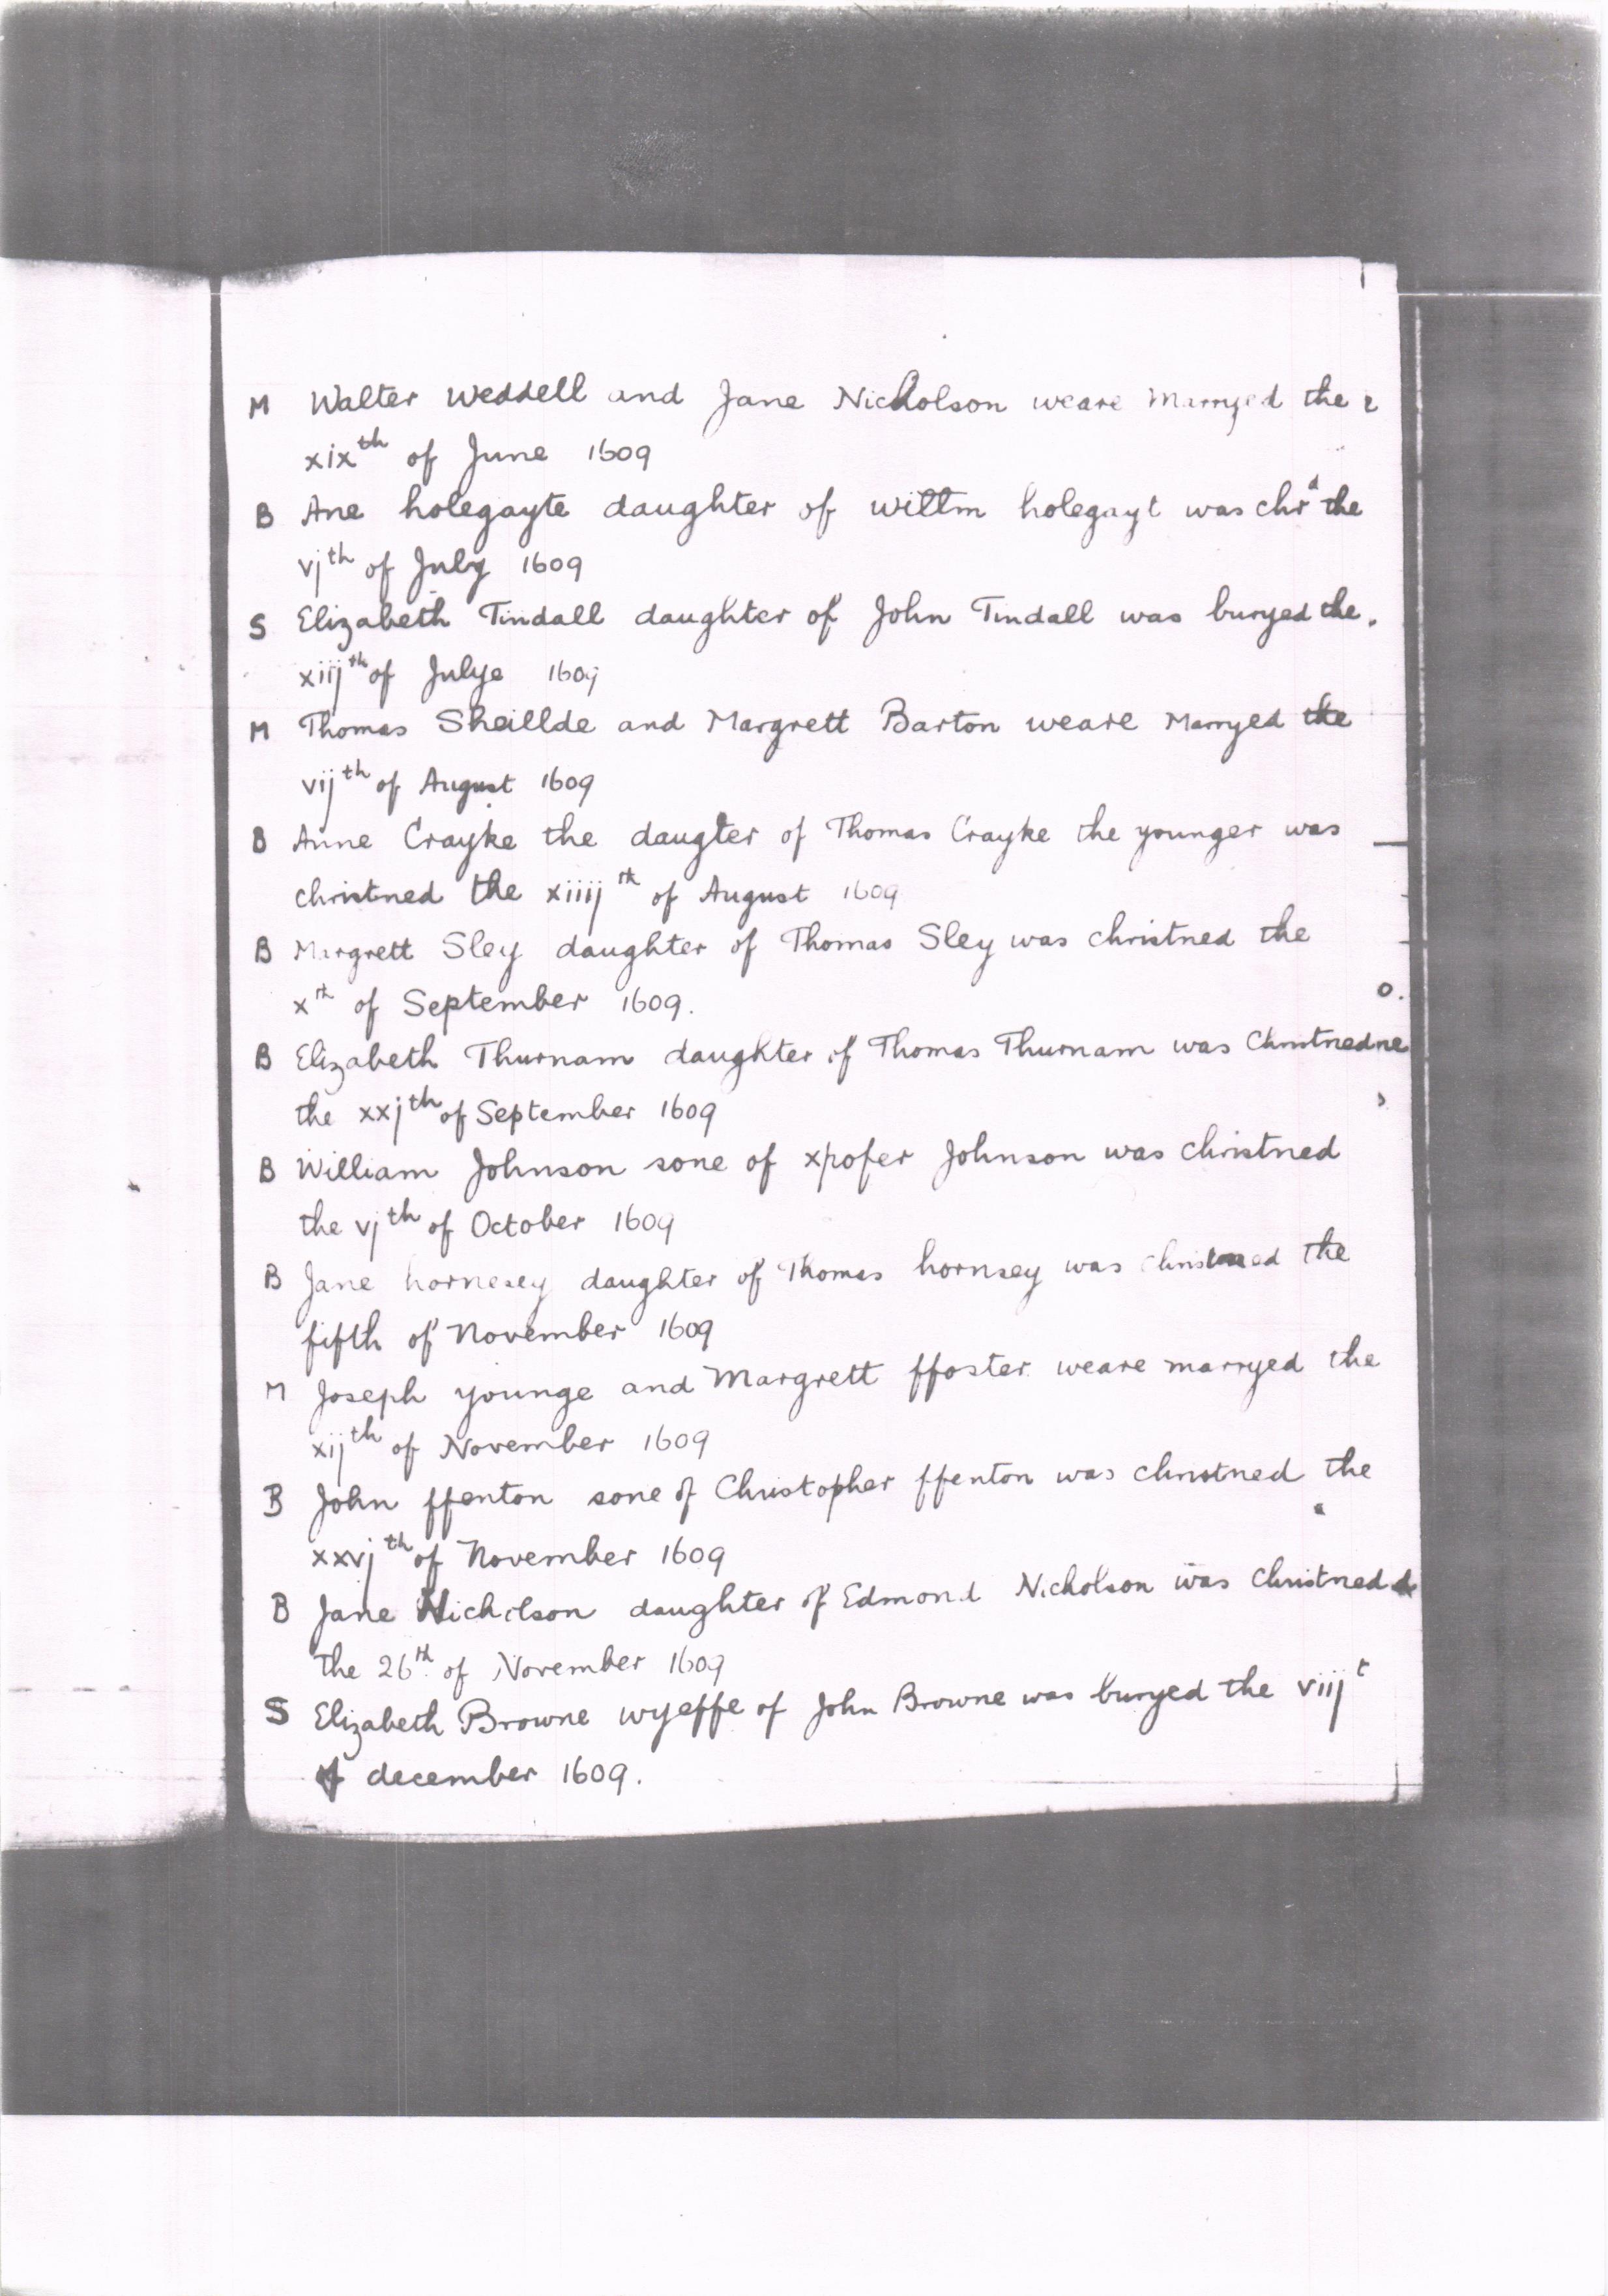 M Walter Weddell and Jane Nicholson weare Marryed the
xix th of June 1609
B Ane holegayte daughter of willm holegayt was chr d the
vj th of July 1609
S Elizabeth Tindall daughter of John Tindall was buryed the.
xiij th of Julye 1609
M Thomas Sheillde and Margrett Barton weare Marryed the
vij th of August 1609
B Anne Crayke the daugter of Thomas Crayke the younger was
christned the xiiij th of August 1609
B Margrett Sley daughter of Thomas Sley was christned the
x th of September 1609.
B Elizabeth Thurnam daughter of Thomas Thurnam was Christned
the xxj th of September 1609
B William Johnson sone of xpofer Johnson was christned
the vj th of October 1609
B Jane hornesey daughter of Thomas hornsey was christned the
fifth of November 1609
M Joseph younge and Margrett ffoster weare marryed the
xij th of November 1609
B John ffenton sone of Christopher ffenton was christned the
xxvj th of November 1609
B Jane Nicholson daughter of Edmond Nicholson was Christned
the 26 th. of November 1609
S Elizabeth Browne wyeffe of John Browne was buryed the viij t
of december 1609.